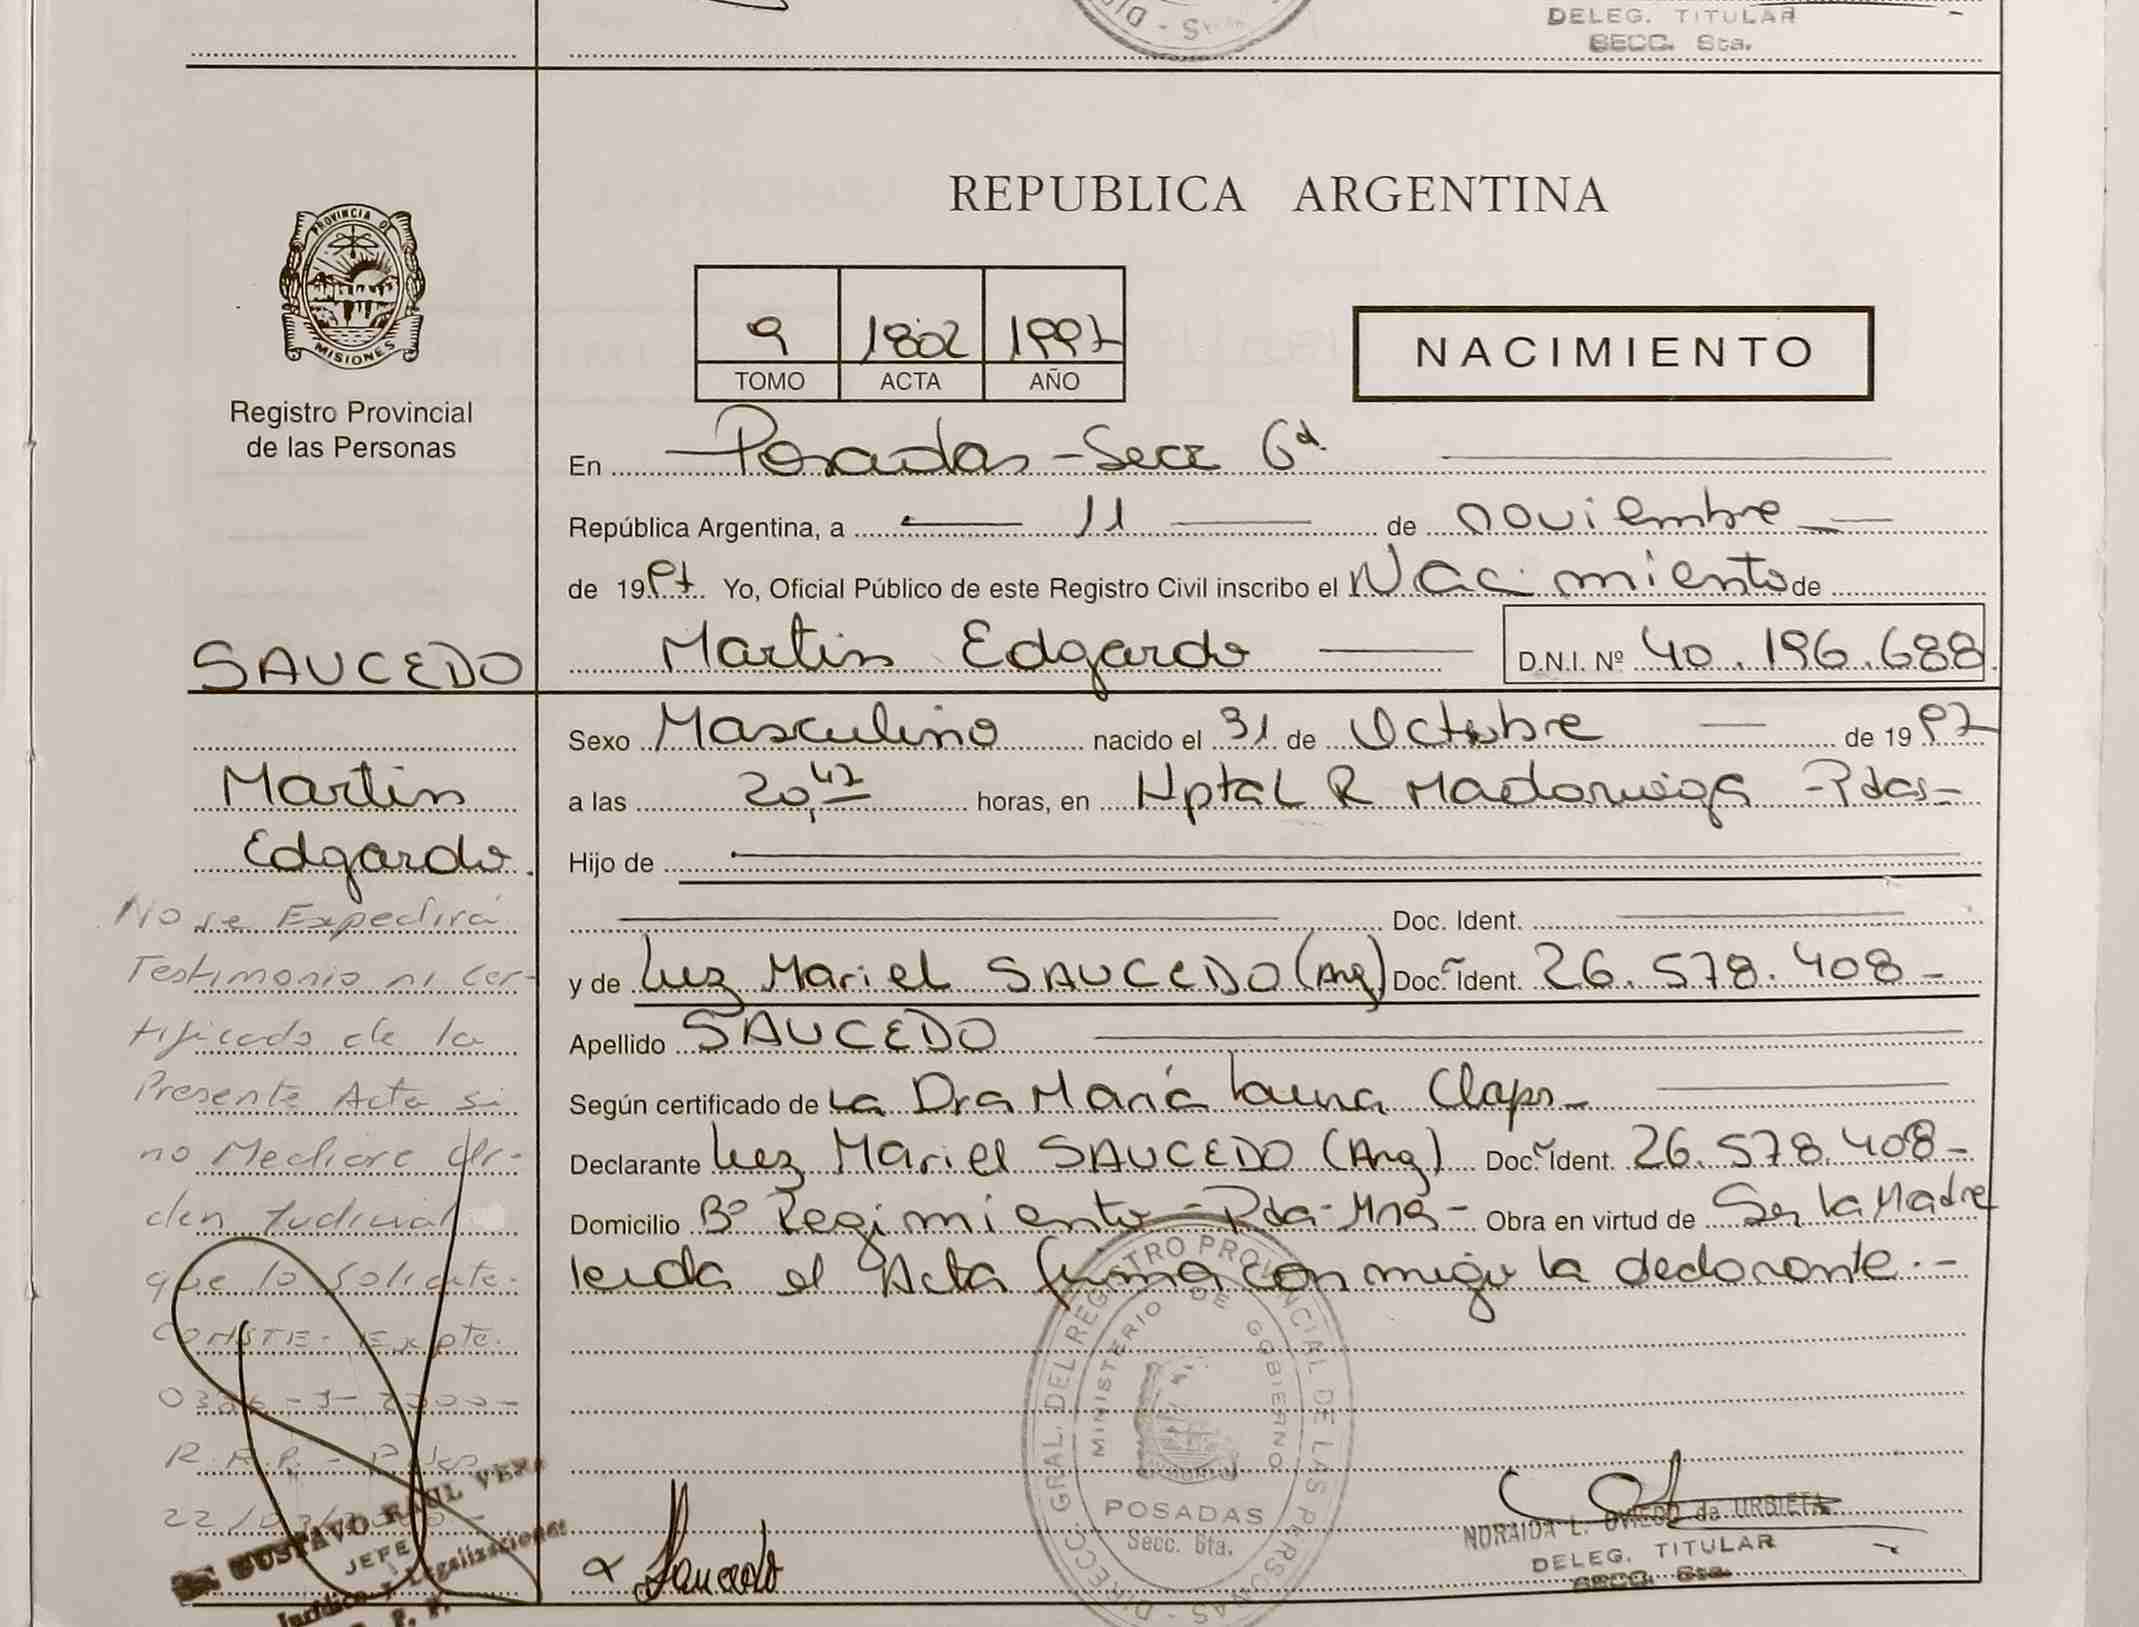 DELEG. TITULAR
SECC. 6ta.
REPUBLICA ARGENTINA
PROVINCIA DE
MISIONES
Registro Provincial
de las Personas
9 1802 1997
TOMO ACTA AÑO
NACIMIENTO
En Posadas - Secc 6ª
República Argentina, a 11 de noviembre
de 1997 Yo, Oficial Público de este Registro Civil inscribo el Nacimiento de
SAUCEDO
Martin Edgardo D.N.I. Nº 40.196.688
Sexo Masculino nacido el 31 de Octubre de 1997
Martin
a las 20,47 horas, en Hptal R Madariaga - Pdas -
Edgardo
Hijo de
Doc. Ident.
y de Luz Mariel SAUCEDO (Arg) Doc. Ident. 26.578.408 -
Apellido SAUCEDO
Según certificado de La Dra María Laura Claps -
Declarante Luz Mariel SAUCEDO (Arg) Doc. Ident. 26.578.408 -
Domicilio Bº Regimiento - Pda - Mns - Obra en virtud de Ser la Madre
leida el Acta firma conmigo la declarante . -
No se Expedirá
Testimonio ni Cer-
tificado de la
Presente Acta si
no Mediare Or-
den Judicial
que lo Solicite.
CONSTE - Expte.
R.P.P. - Pdas
DIRECC. GRAL. DEL REGISTRO PROVINCIAL DE LAS PERSONAS
MINISTERIO DE GOBIERNO
POSADAS
Secc. 6ta.
GUSTAVO RAUL
JEFE
Jurídico y Legalizaciones
Saucedo
NORAIDA L. OVIEDO de URBIETA
DELEG. TITULAR
SECC. 6ta.